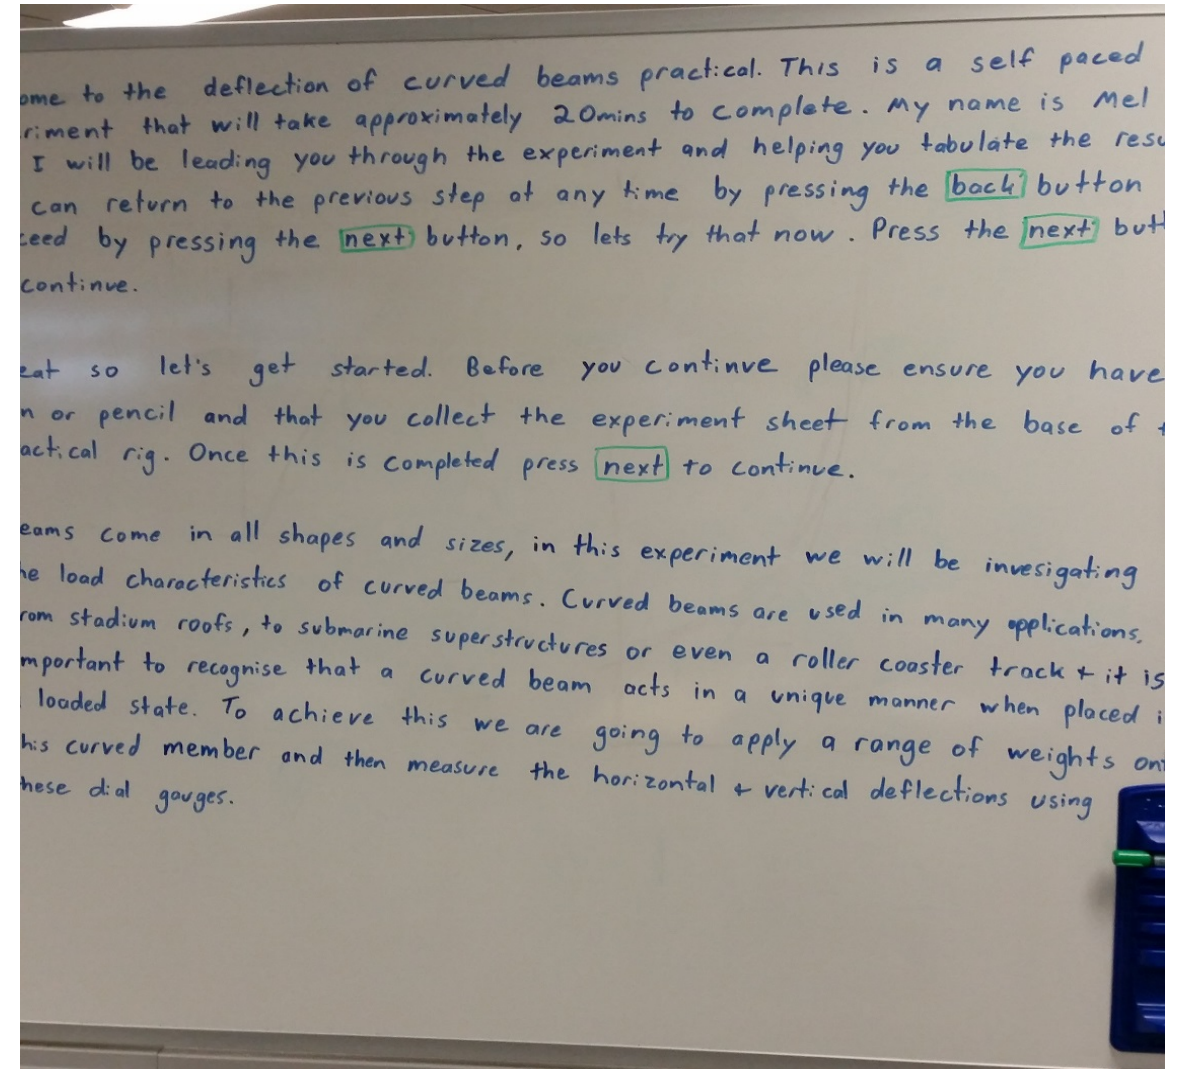 ome to the deflection of curved beams practical. This is a self paced
riment that will take approximately 20mins to complete. My name is Mel
I will be leading you through the experiment and helping you tabulate the resu
can return to the previous step at any time by pressing the back button
ceed by pressing the next button, so lets try that now. Press the next butt
continue.
eat so let's get started. Before you continue please ensure you have
n or pencil and that you collect the experiment sheet from the base of t
actical rig. Once this is completed press next to continue.
eams come in all shapes and sizes, in this experiment we will be invesigating
he load characteristics of curved beams. Curved beams are used in many applications,
rom stadium roofs, to submarine superstructures or even a roller coaster track + it is
mportant to recognise that a curved beam acts in a unique manner when placed i
loaded state. To achieve this we are going to apply a range of weights ont
his curved member and then measure the horizontal + vertical deflections using
hese dial gauges.